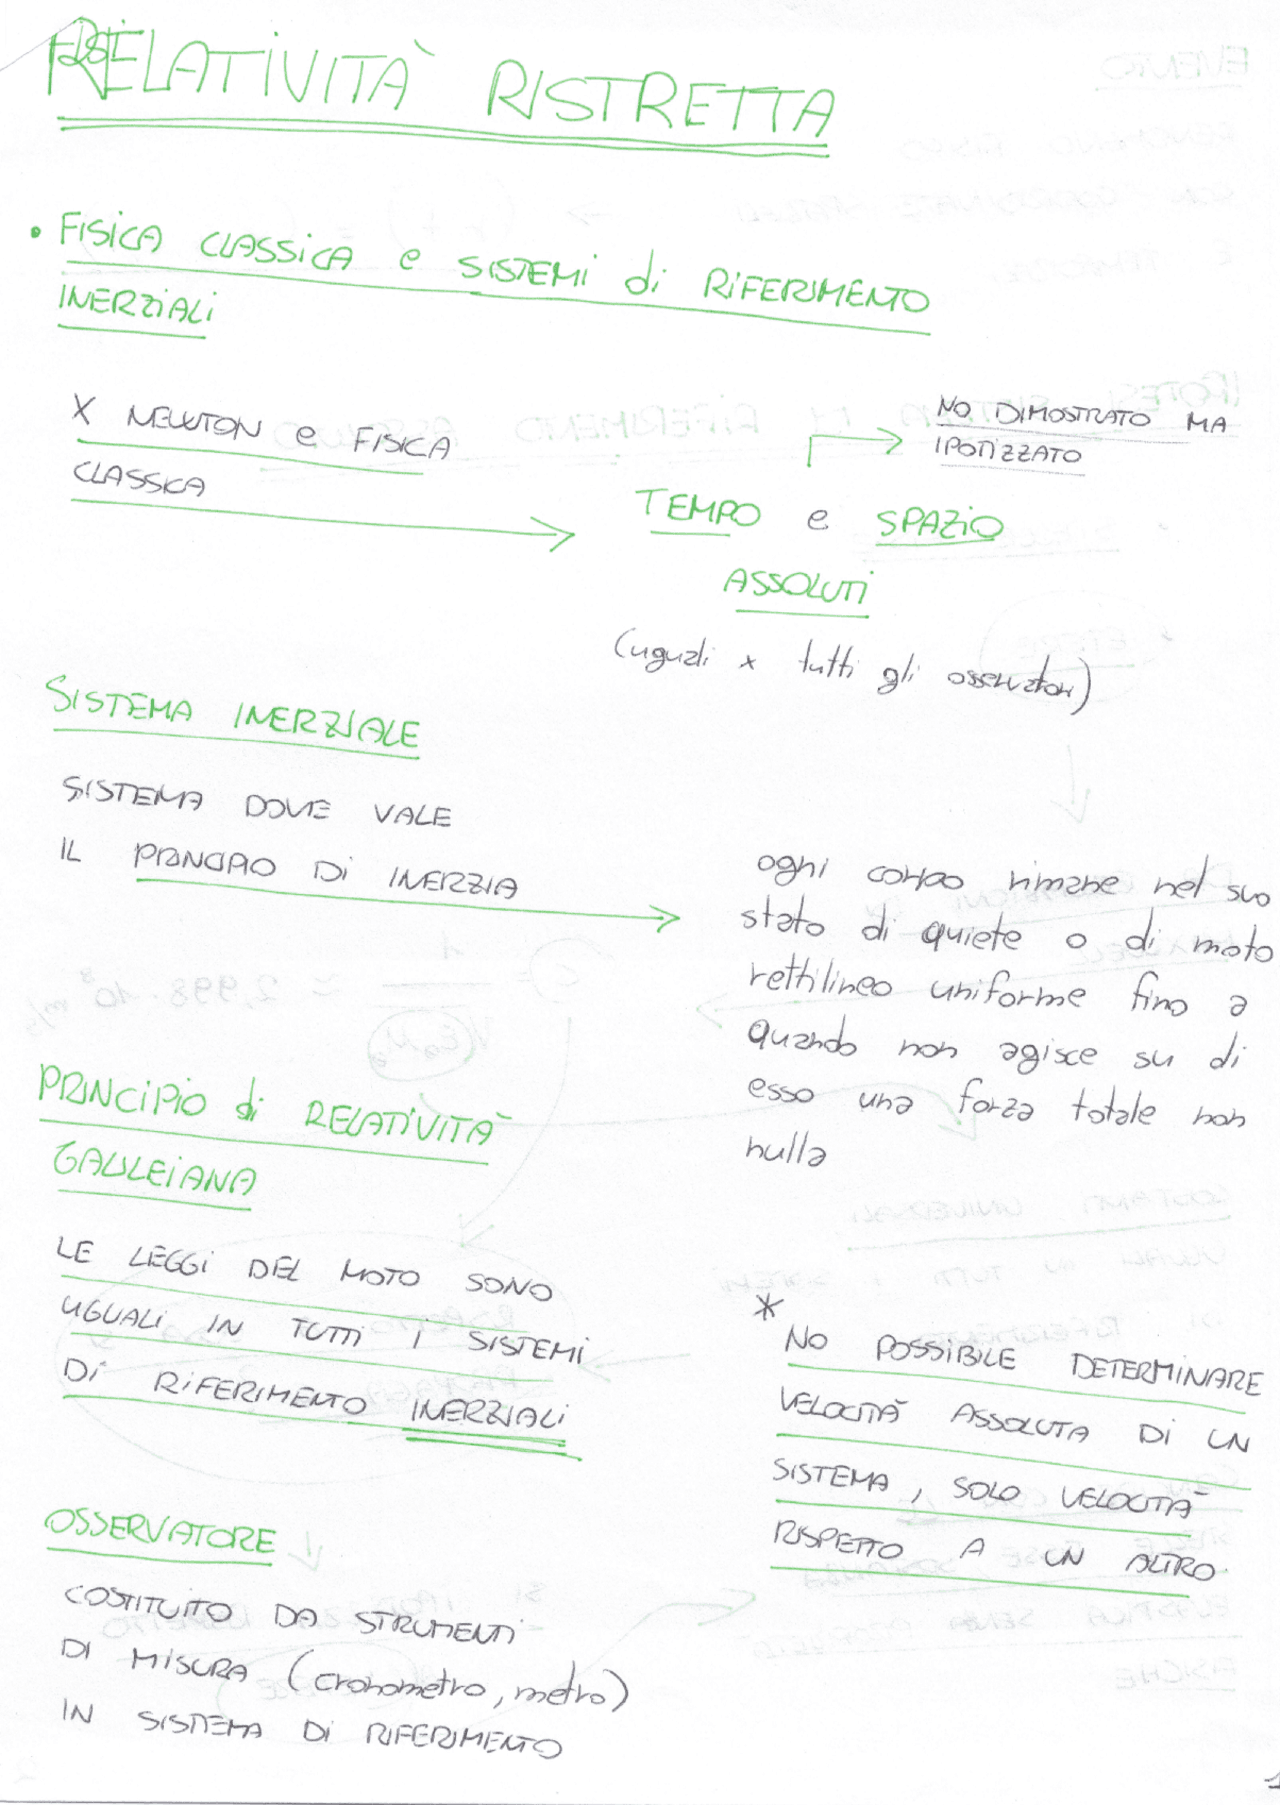 RELATIVITÀ RISTRETTA
• FISICA CLASSICA e SISTEMI di RIFERIMENTO
INERZIALI
X NEWTON e FISICA
CLASSICA
NO DIMOSTRATO MA
IPOTIZZATO
TEMPO e SPAZIO
ASSOLUTI
(uguali x tutti gli osservatori)
SISTEMA INERZIALE
SISTEMA DOVE VALE
IL PRINCIPIO DI INERZIA
ogni corpo rimane nel suo
stato di quiete o di moto
rettilineo uniforme fino a
quando non agisce su di
esso una forza totale non
nulla
PRINCIPIO di RELATIVITÀ
GALILEIANA
LE LEGGI DEL MOTO SONO
UGUALI IN TUTTI I SISTEMI
DI RIFERIMENTO INERZIALI
*
NO POSSIBILE DETERMINARE
VELOCITÀ ASSOLUTA DI UN
SISTEMA, SOLO VELOCITÀ
RISPETTO A UN ALTRO
OSSERVATORE
COSTITUITO DA STRUMENTI
DI MISURA (cronometro, metro)
IN SISTEMA DI RIFERIMENTO
1